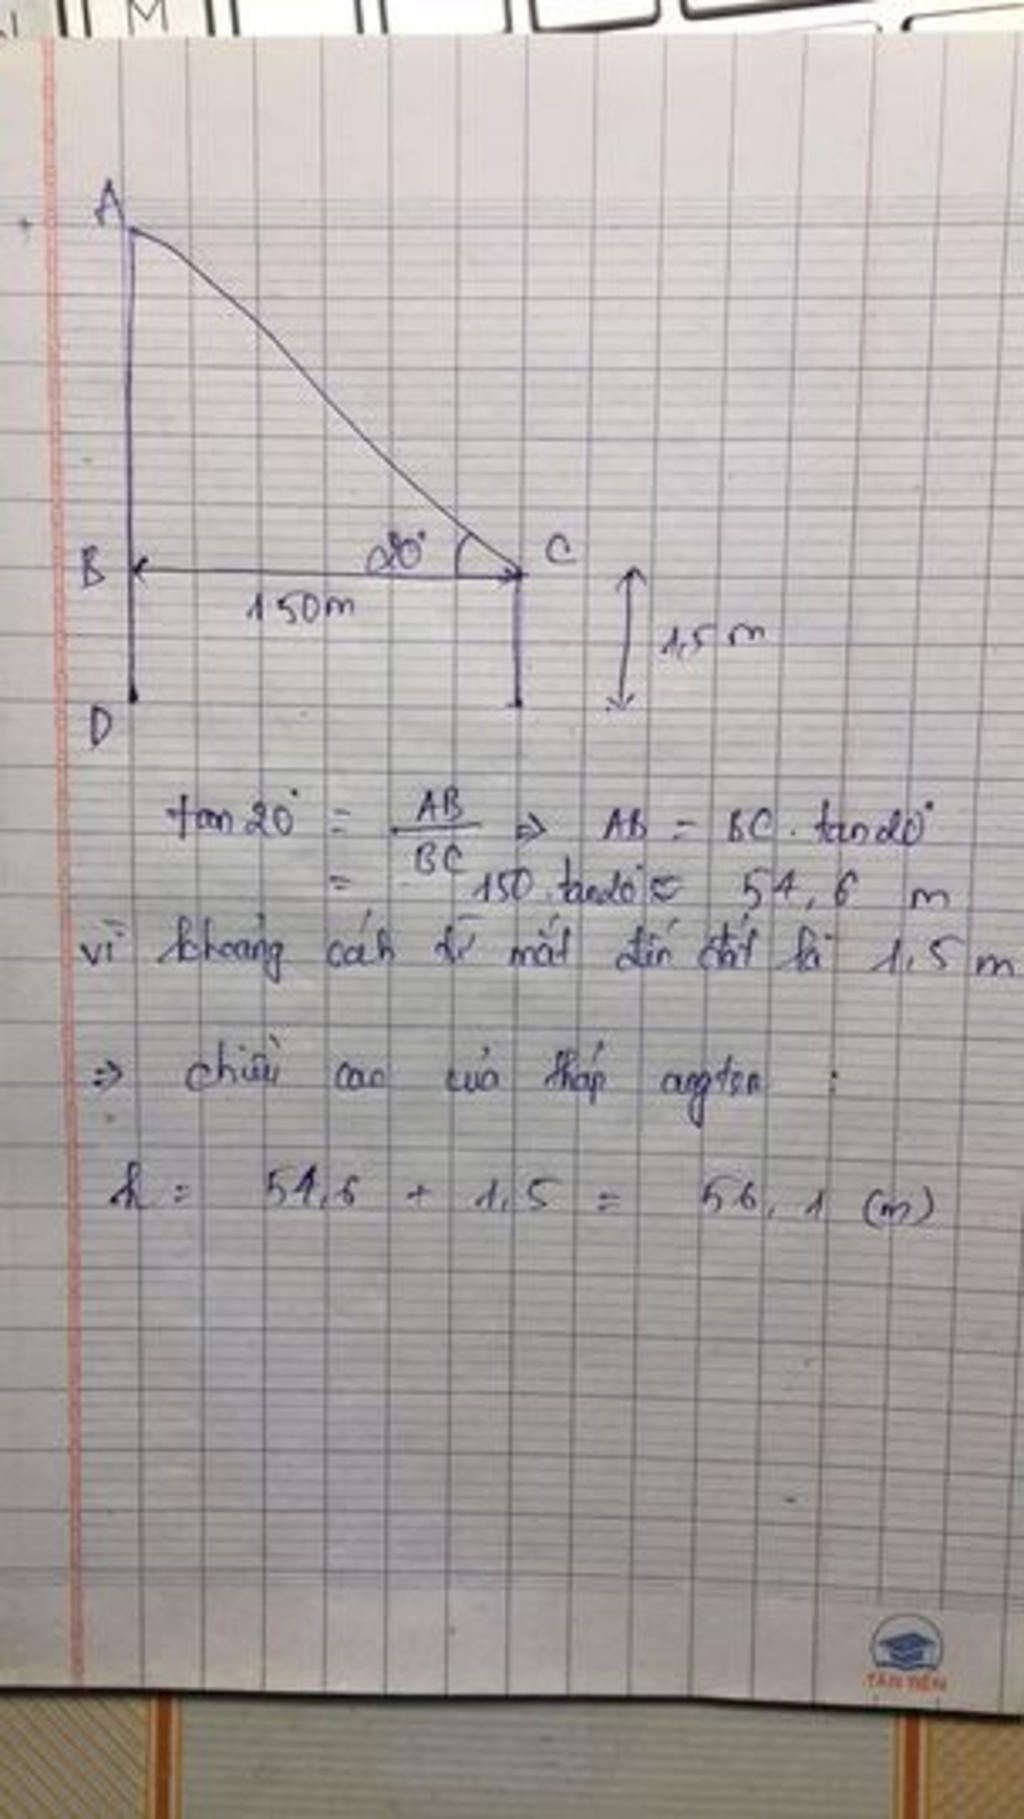 M
A
B
20°
C
150m
1,5 m
D
tan 20° = AB / BC => AB = BC . tan 20°
= 150 . tan20° = 54,6 m
vì khoảng cách từ mắt đến đất là 1,5 m
=> chiều cao của tháp angten :
h = 54,6 + 1,5 = 56,1 (m)
TÂN TIẾN